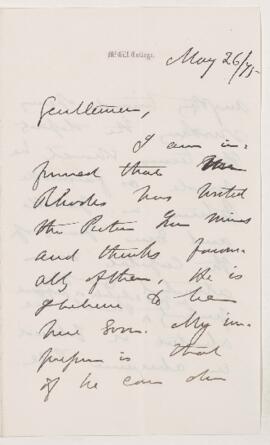 McGill College.
May 26/75
Gentlemen,
I am in-
formed that Mr
Rhodes has visited
the Pictou Iron mines
and thinks favour-
ably of them, He is
I believe to be
here soon. My im-
pression is that
if he can